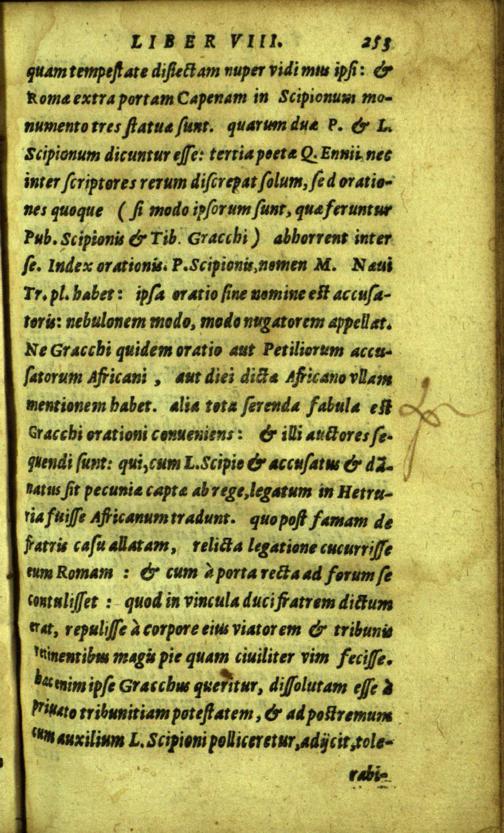 LIBER VIII. 253
quam tempeſtate diſiectam nuper vidimus ipſi: &
Romæ extra portam Capenam in Scipionum mo-
numento tres ſtatuæ ſunt. quarum duæ P. & L.
Scipionum dicuntur eſſe: tertia poetæ Q. Ennii. nec
inter ſcriptores rerum diſcrepat ſolum, ſed oratio-
nes quoque (ſi modo ipſorum ſunt, quæ feruntur
Pub. Scipionis & Tib. Gracchi) abhorrent inter
ſe. Index orationis. P. Scipionis, nomen M. Næui
Tr. pl. habet: ipſa oratio ſine nomine eſt accuſa-
toris: nebulonem modo, modo nugatorem appellat.
Ne Gracchi quidem oratio aut Petiliorum accu-
ſatorum Africani, aut diei dictæ Africano vllam
mentionem habet. alia tota ſerenda fabula eſt
Gracchi orationi conueniens: & illi auctores ſe-
quendi ſunt: qui, cum L. Scipio & accuſatus & dā-
natus ſit pecuniæ captæ ab rege, legatum in Hetru-
ria fuiſſe Africanum tradunt. quo poſt famam de
fratris caſu allatam, relicta legatione cucurriſſe
eum Romam: & cum à porta recta ad forum ſe
contuliſſet: quod in vincula duci fratrem dictum
erat, repuliſſe à corpore eius viatorem & tribunis
retinentibus magis pie quam ciuiliter vim feciſſe.
hæc enim ipſe Gracchus queritur, diſſolutam eſſe à
priuato tribunitiam poteſtatem, & ad poſtremum
cum auxilium L. Scipioni polliceretur, adijcit, tole-
rabi-